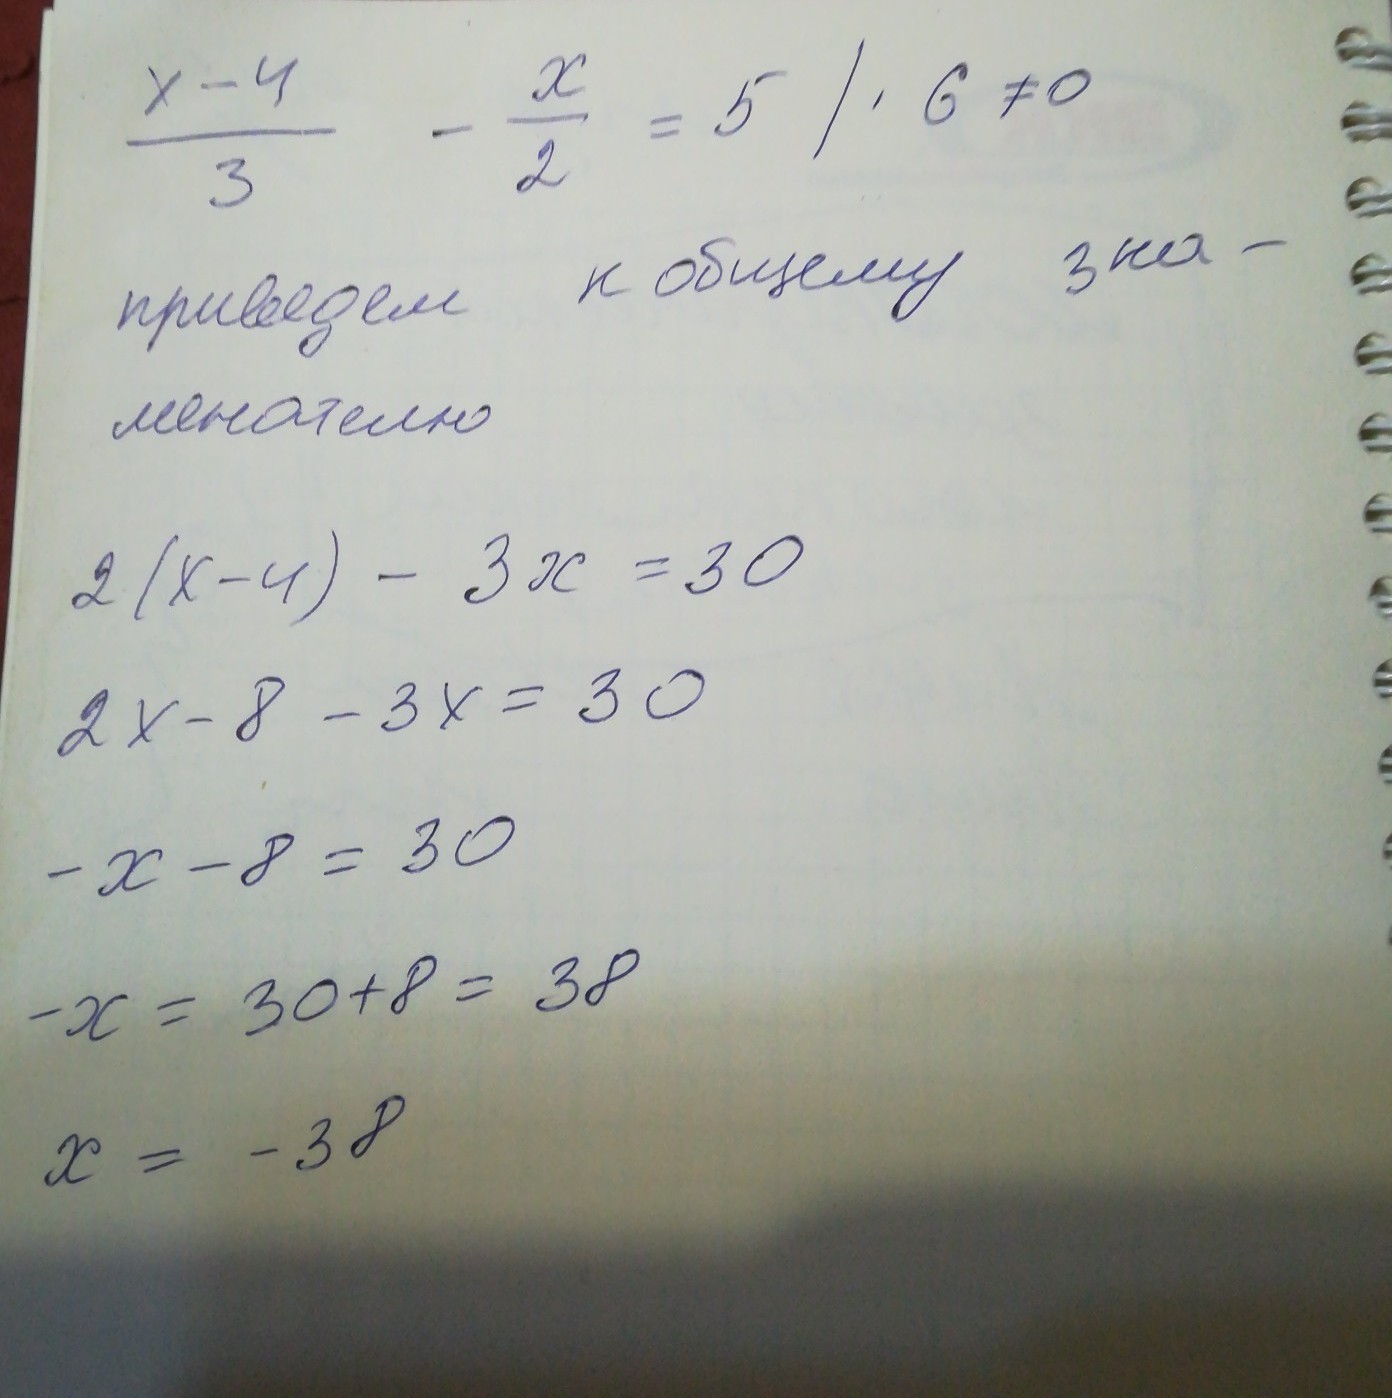 x-4/3 - x/2 = 5 / · 6 ≠0
приведем к общему зна-
менателю
2(x-4) - 3x = 30
2x - 8 - 3x = 30
-x - 8 = 30
-x = 30+8 = 38
x = -38